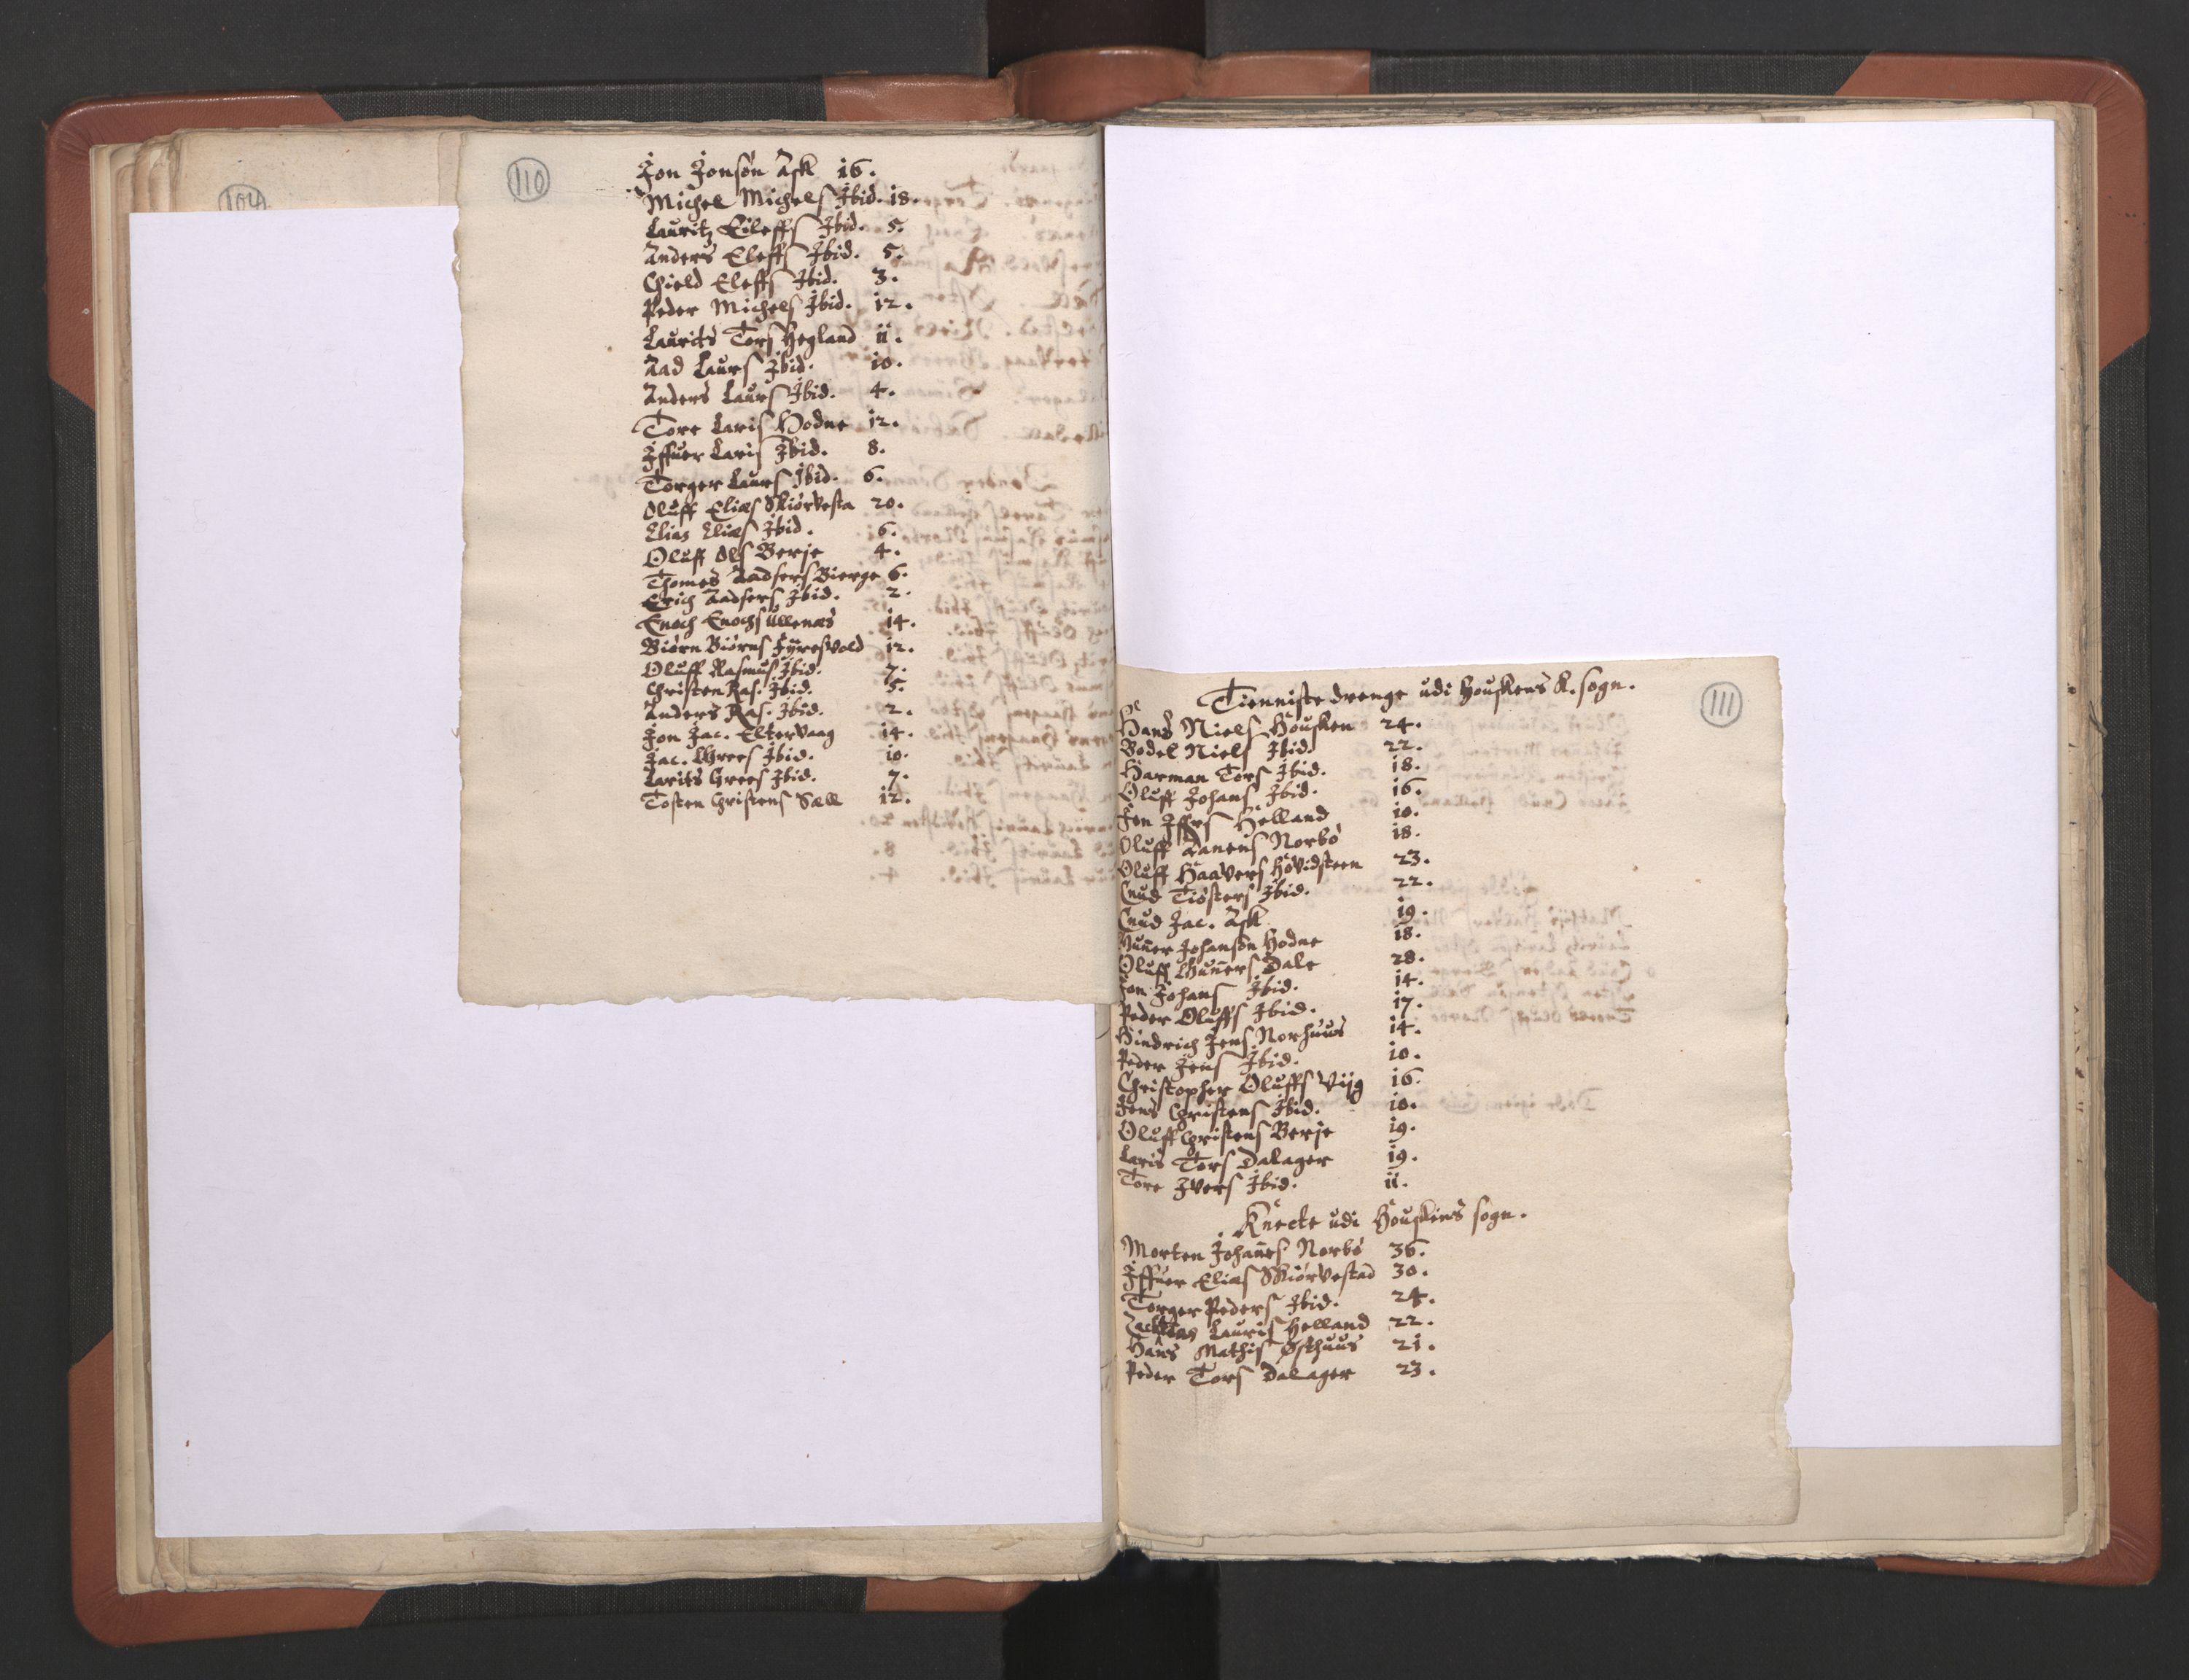 104
110
Jon Jonsøn Ask 16.
Michel Michels Ibid. 18.
Lauritz Eileffs Ibid. 5.
Anders Eleffs Ibid. 5.
Chield Eleffs Ibid. 3.
Peder Michels Ibid. 12.
Laurits Tors Hegland 11.
Aad Laurs Ibid. 10.
Anders Laurs Ibid. 4.
Tore Laris Hodne 12.
Iffuer Laris Ibid. 8.
Torger Laurs Ibid. 6.
Oluff Elias Skiørvesta 20.
Elias Elias Ibid. 6.
Oluff Ols Berje 4.
Thomes Aadsers Bierge 6.
Erich Aadsers Ibid. 2.
Enoch Enochs Ullenæs 14.
Biørn Biørns Fyresvold 12.
Oluff Rasmus Ibid. 7.
Christen Ras. Ibid. 5.
Anders Ras. Ibid. 2.
Jon Jac. Eltervaag 14.
Jac. Ibid. 10.
Larits Ibid. 7.
Tosten Christens Sæll 12.
111
Tienniste drenge udi Houskens K. sogn.
Hans Niels Housken 24.
Bodel Niels Ibid. 22.
Harman Tors Ibid. 18.
Oluff Johans Ibid. 16.
Jon Iffers Helland 10.
Oluff Norbø 18.
Oluff Haavers Hovidsteen 23.
Cnud Tiøsters Ibid. 22.
Cnud Jac. Ask 19.
Johansøn Hodne 18.
Oluff Dale 28.
Jon Johans Ibid. 14.
Peder Oluffs Ibid. 17.
Hindrich Jens Norhuus 14.
Peder Jens Ibid. 10.
Christopher Oluffs Viig 16.
Jens Christens Ibid. 10.
Oluff Christens Berje 19.
Laris Tors Dalager 19.
Tore Ivers Ibid. 11.
Knecte udi Houskins sogn.
Morten Johanes Norbø 36.
Iffuer Elias Skiørvestad 30.
Torger Peders Ibid. 24.
Lauris Helland 22.
Hans Mathis Østhuus 21.
Peder Tors Dalager 23.